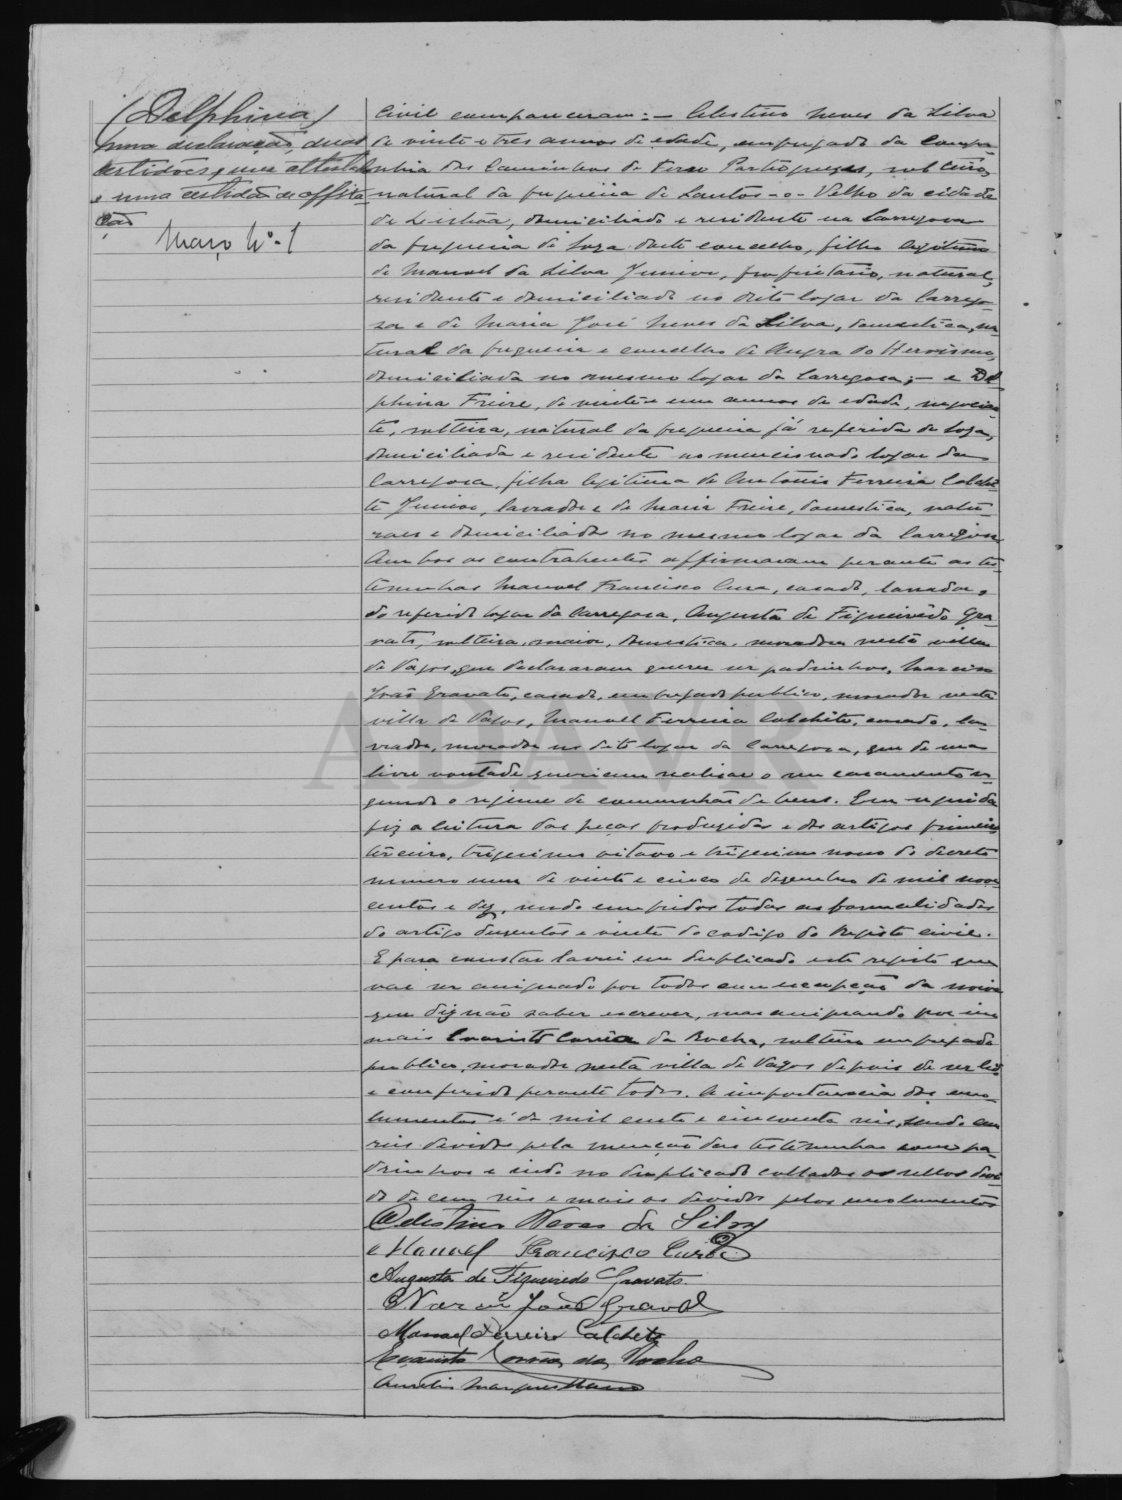 (Delphina)
uma declaração, duas
certidões, um attestado
e uma certidão de affixa-
ção
Maço Nº 1
civil compareceram: — Celestino Neves da Silva
de vinte e tres annos de edade, empregado da Compa-
nhia dos Caminhos de Ferro Portuguezes, solteiro,
natural da freguezia de Santos-o-Velho da cidade
de Lisbôa, domiciliado e residente na Carregosa
da freguezia de Soza deste concelho, filho legitimo
de Manoel da Silva Junior, proprietario, natural,
residente e domiciliado no dito logar da Carrego-
sa e de Maria José Neves da Silva, domestica, na-
tural da freguezia e concelho de Angra do Heroismo,
domiciliada no mesmo logar da Carregosa; — e Del-
phina Freire, de vinte e um annos de edade, negocian-
te, solteira, natural da freguezia já referida de Soza,
domiciliada e residente no mencionado logar da
Carregosa, filha legitima de Antonio Ferreira Calchi-
te Junior, lavrador e de Maria Freire, domestica, natu-
raes e domiciliados no mesmo logar da Carregosa.
Ambos os contrahentes affirmaram perante as tes-
temunhas Manoel Francisco Cura, casado, lavrador,
do referido logar da Carregosa, Augusta de Figueirêdo Gra-
vato, solteira, maior, domestica, moradora nesta villa
de Vagos, que declararam querer ser padrinhos, Narciso
João Gravato, casado, empregado publico, morador nesta
villa de Vagos, Manoel Ferreira Calchite, casado, la-
vrador, morador no dito logar da Carregosa, que de sua
livre vontade queriam realisar o seu casamento se-
gundo o regime de communhão de bens. Em seguida
fiz a leitura das peças produzidas e dos artigos primeiro
terceiro, trigesimo oitavo e trigesimo nono do decreto
numero um de vinte e cinco de dezembro de mil nove-
centos e dez, sendo cumpridas todas as formalidades
do artigo duzentos e vinte do codigo do Registo civil.
E para constar lavrei em duplicado este registo que
vae ser assignado por todos com excepção da noiva
que diz não saber escrever, mas assignando por ella
mais Evaristo Corrêa da Rocha, solteiro empregado
publico, morador nesta villa de Vagos depois de ser lido
e conferido perante todos. A importancia dos emo-
lumentos é de mil cento e cincoenta reis, sendo cem
reis devidos pela menção das testemunhas como pa-
drinhos e sendo no duplicado collados os sellos devi-
do de cem reis e mais os devidos pelos emolumentos
Celestino Neves da Silva
Manoel Francisco Cura
Augusta de Figueiredo Gravato
Narciso João Gravato
Manoel Ferreira Calchite
Evaristo Corrêa da Rocha
Aurelio Marques Mano
ADAVR